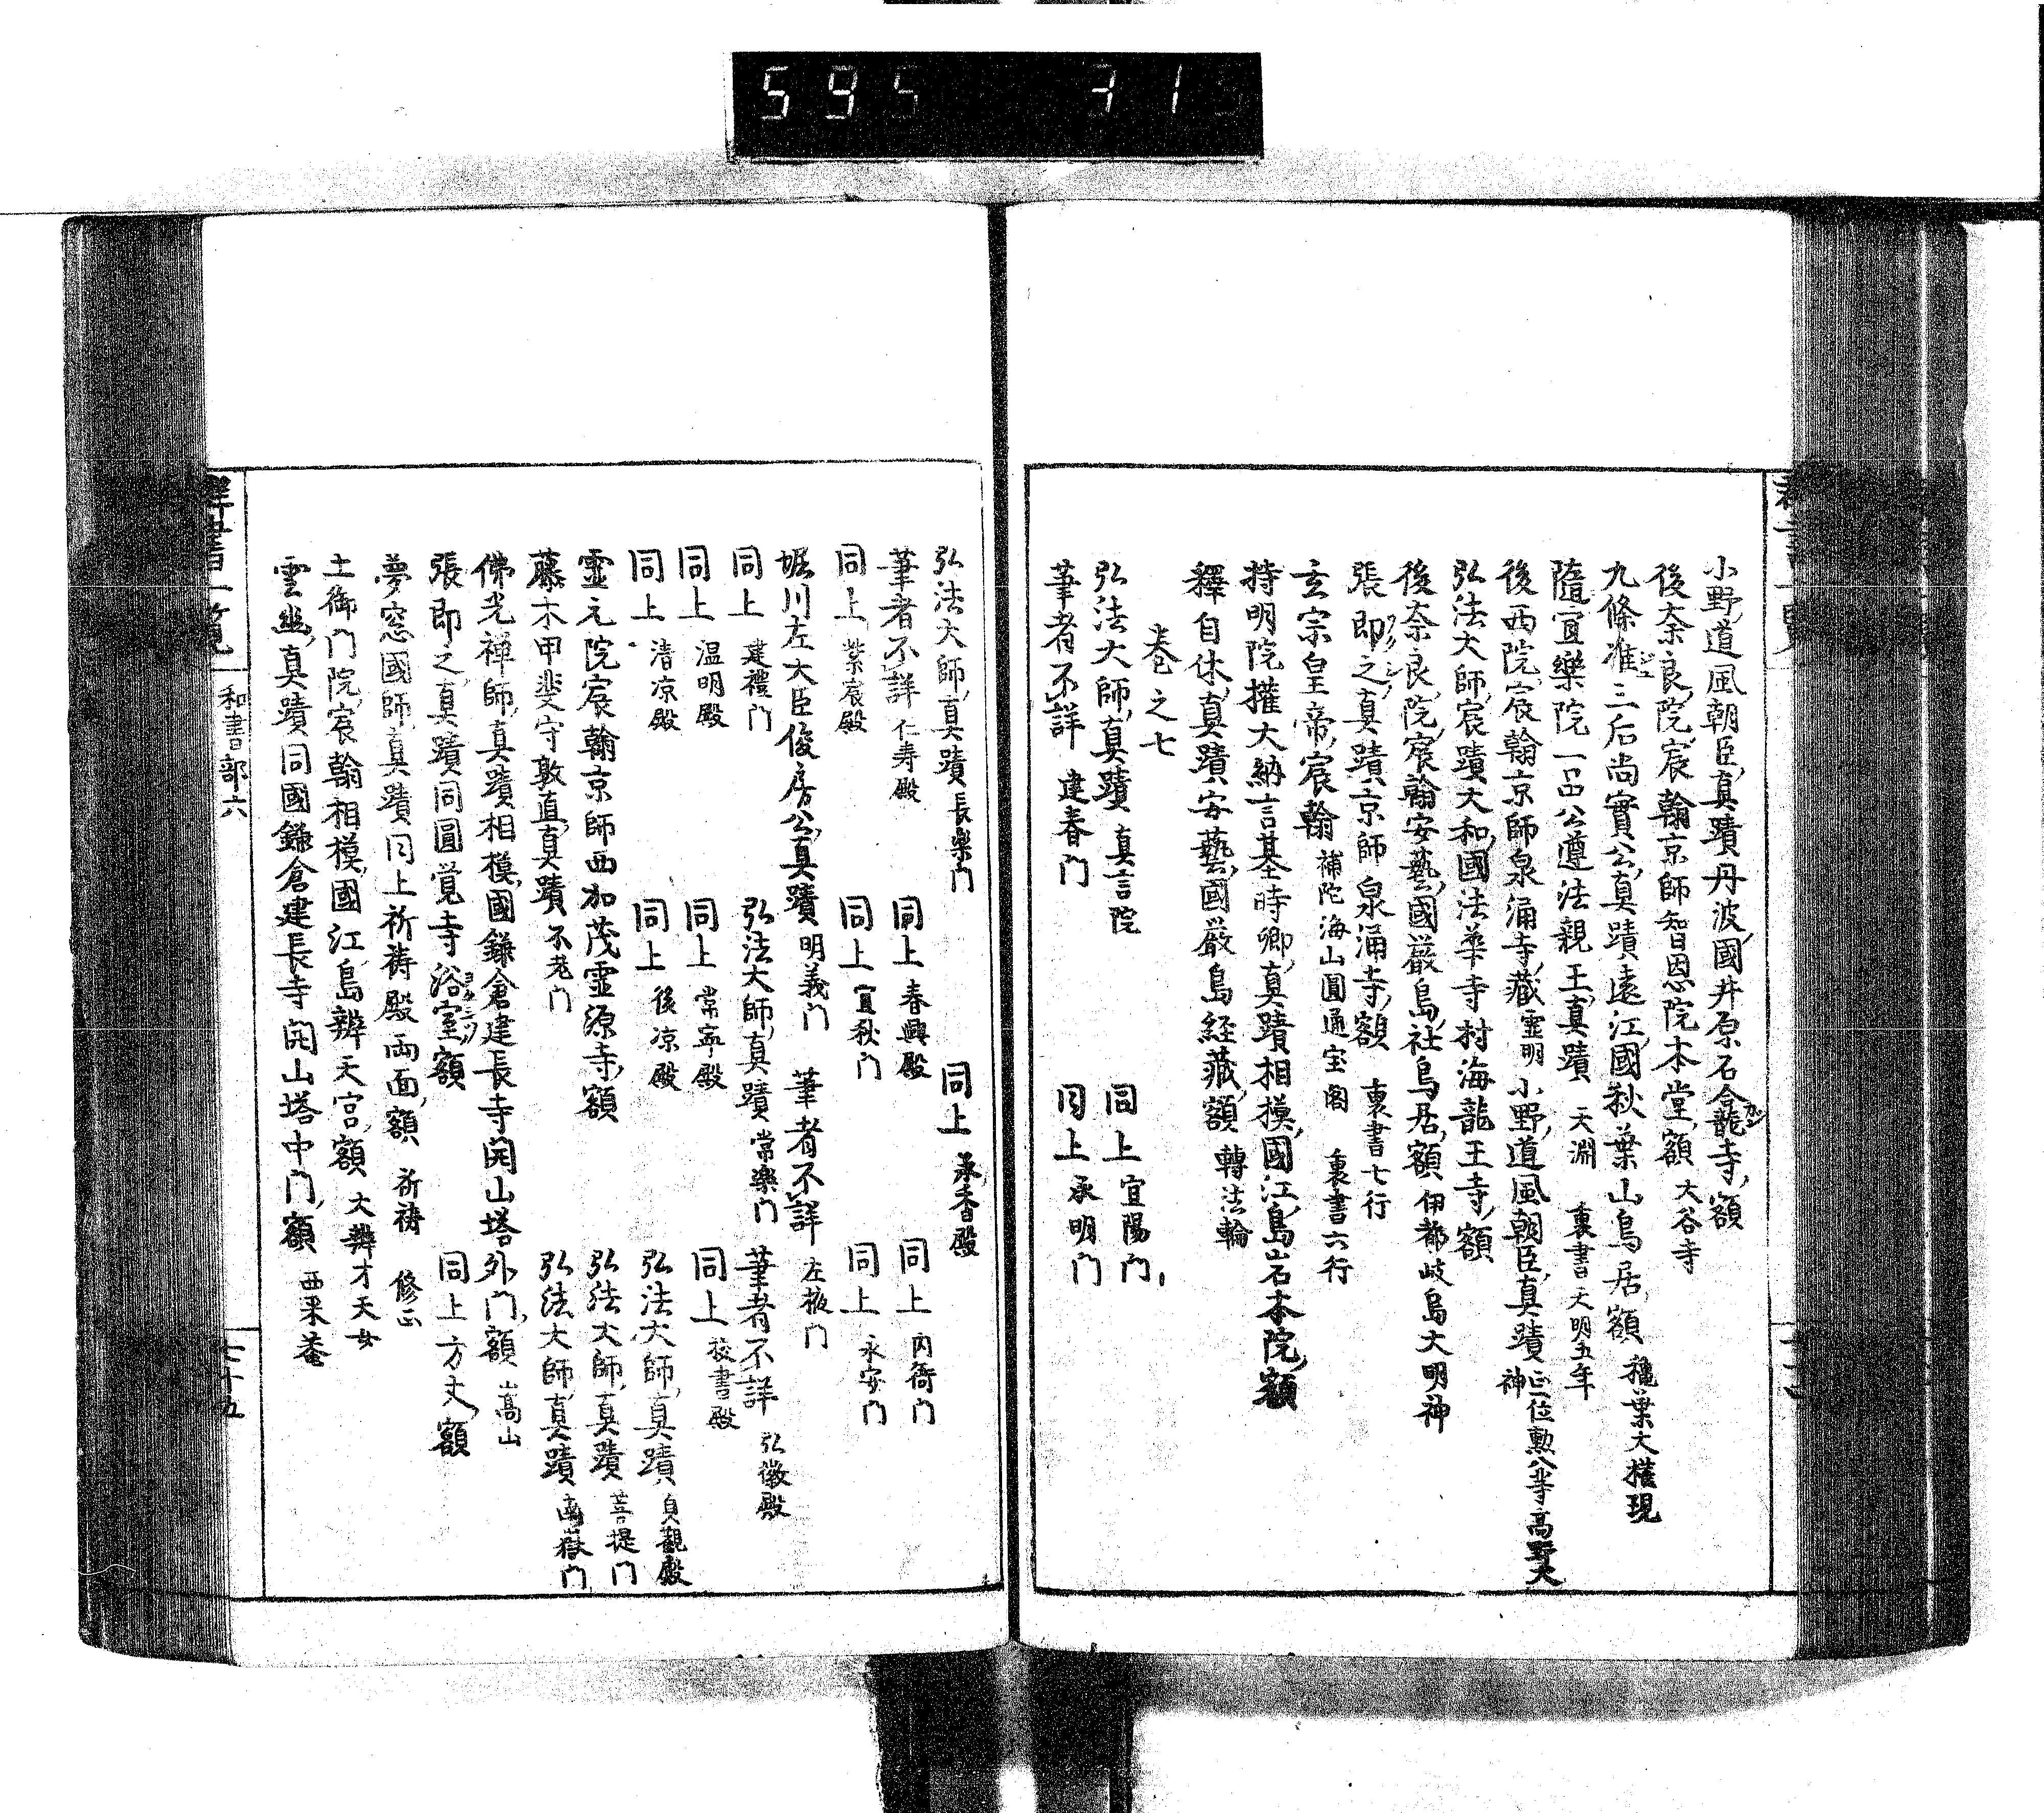 595 31
小野道風朝臣真蹟丹波國井原石龕寺額
後奈良院宸翰京師智恩院本堂額 大谷寺
九條准三后尚實公真蹟遠江國秋葉山鳥居額 穐葉大權現
隨宜樂院一品公遵法親王真蹟 天淵 裏書天明五年
後西院宸翰京師泉涌寺藏 霊明 小野道風朝臣真蹟 正一位勲八等高野大神
弘法大師宸蹟大和國法華寺村海龍王寺額
後奈良院宸翰安藝國嚴島社鳥居額 伊都岐島大明神
張即之真蹟京師泉涌寺額 裏書七行
玄宗皇帝宸翰 補陀海山圓通宝閣 裏書六行
持明院權大納言基時卿真蹟相模國江島岩本院額
釋自休真蹟安藝國嚴島経藏額 轉法輪
卷之七
弘法大師真蹟 真言院 同上 宜陽門
筆者不詳 建春门 同上 承明门
弘法大師真蹟 長樂门 同上 承香殿
筆者不詳 仁寿殿 同上 春興殿 同上 内裔门
同上 紫宸殿 同上 宜秋门 同上 永安门
堀川左大臣俊房公真蹟 明義门 筆者不詳 左掖门
同上 建禮门 弘法大師真蹟 常樂门 筆者不詳 弘徽殿
同上 温明殿 同上 常寧殿 同上 校書殿
同上 清凉殿 同上 後凉殿 弘法大師真蹟 貞觀殿
霊元院宸翰京師西加茂霊源寺額 弘法大師真蹟 菩提门
藤木甲斐守敦直真蹟 不老门 弘法大師真蹟 嶽门
佛光禅師真蹟相模國鎌倉建長寺開山塔外门額 嵩山
張即之真蹟同圓覚寺浴室額 同上方丈額
夢窓國師真蹟同上祈祷殿両面額 祈祷 修正
土御门院宸翰相模國江島辨天宮額 大辨才天女
霊幽真蹟同國鎌倉建長寺開山塔中门額 西来菴
群書一覧
和書部六
七十五